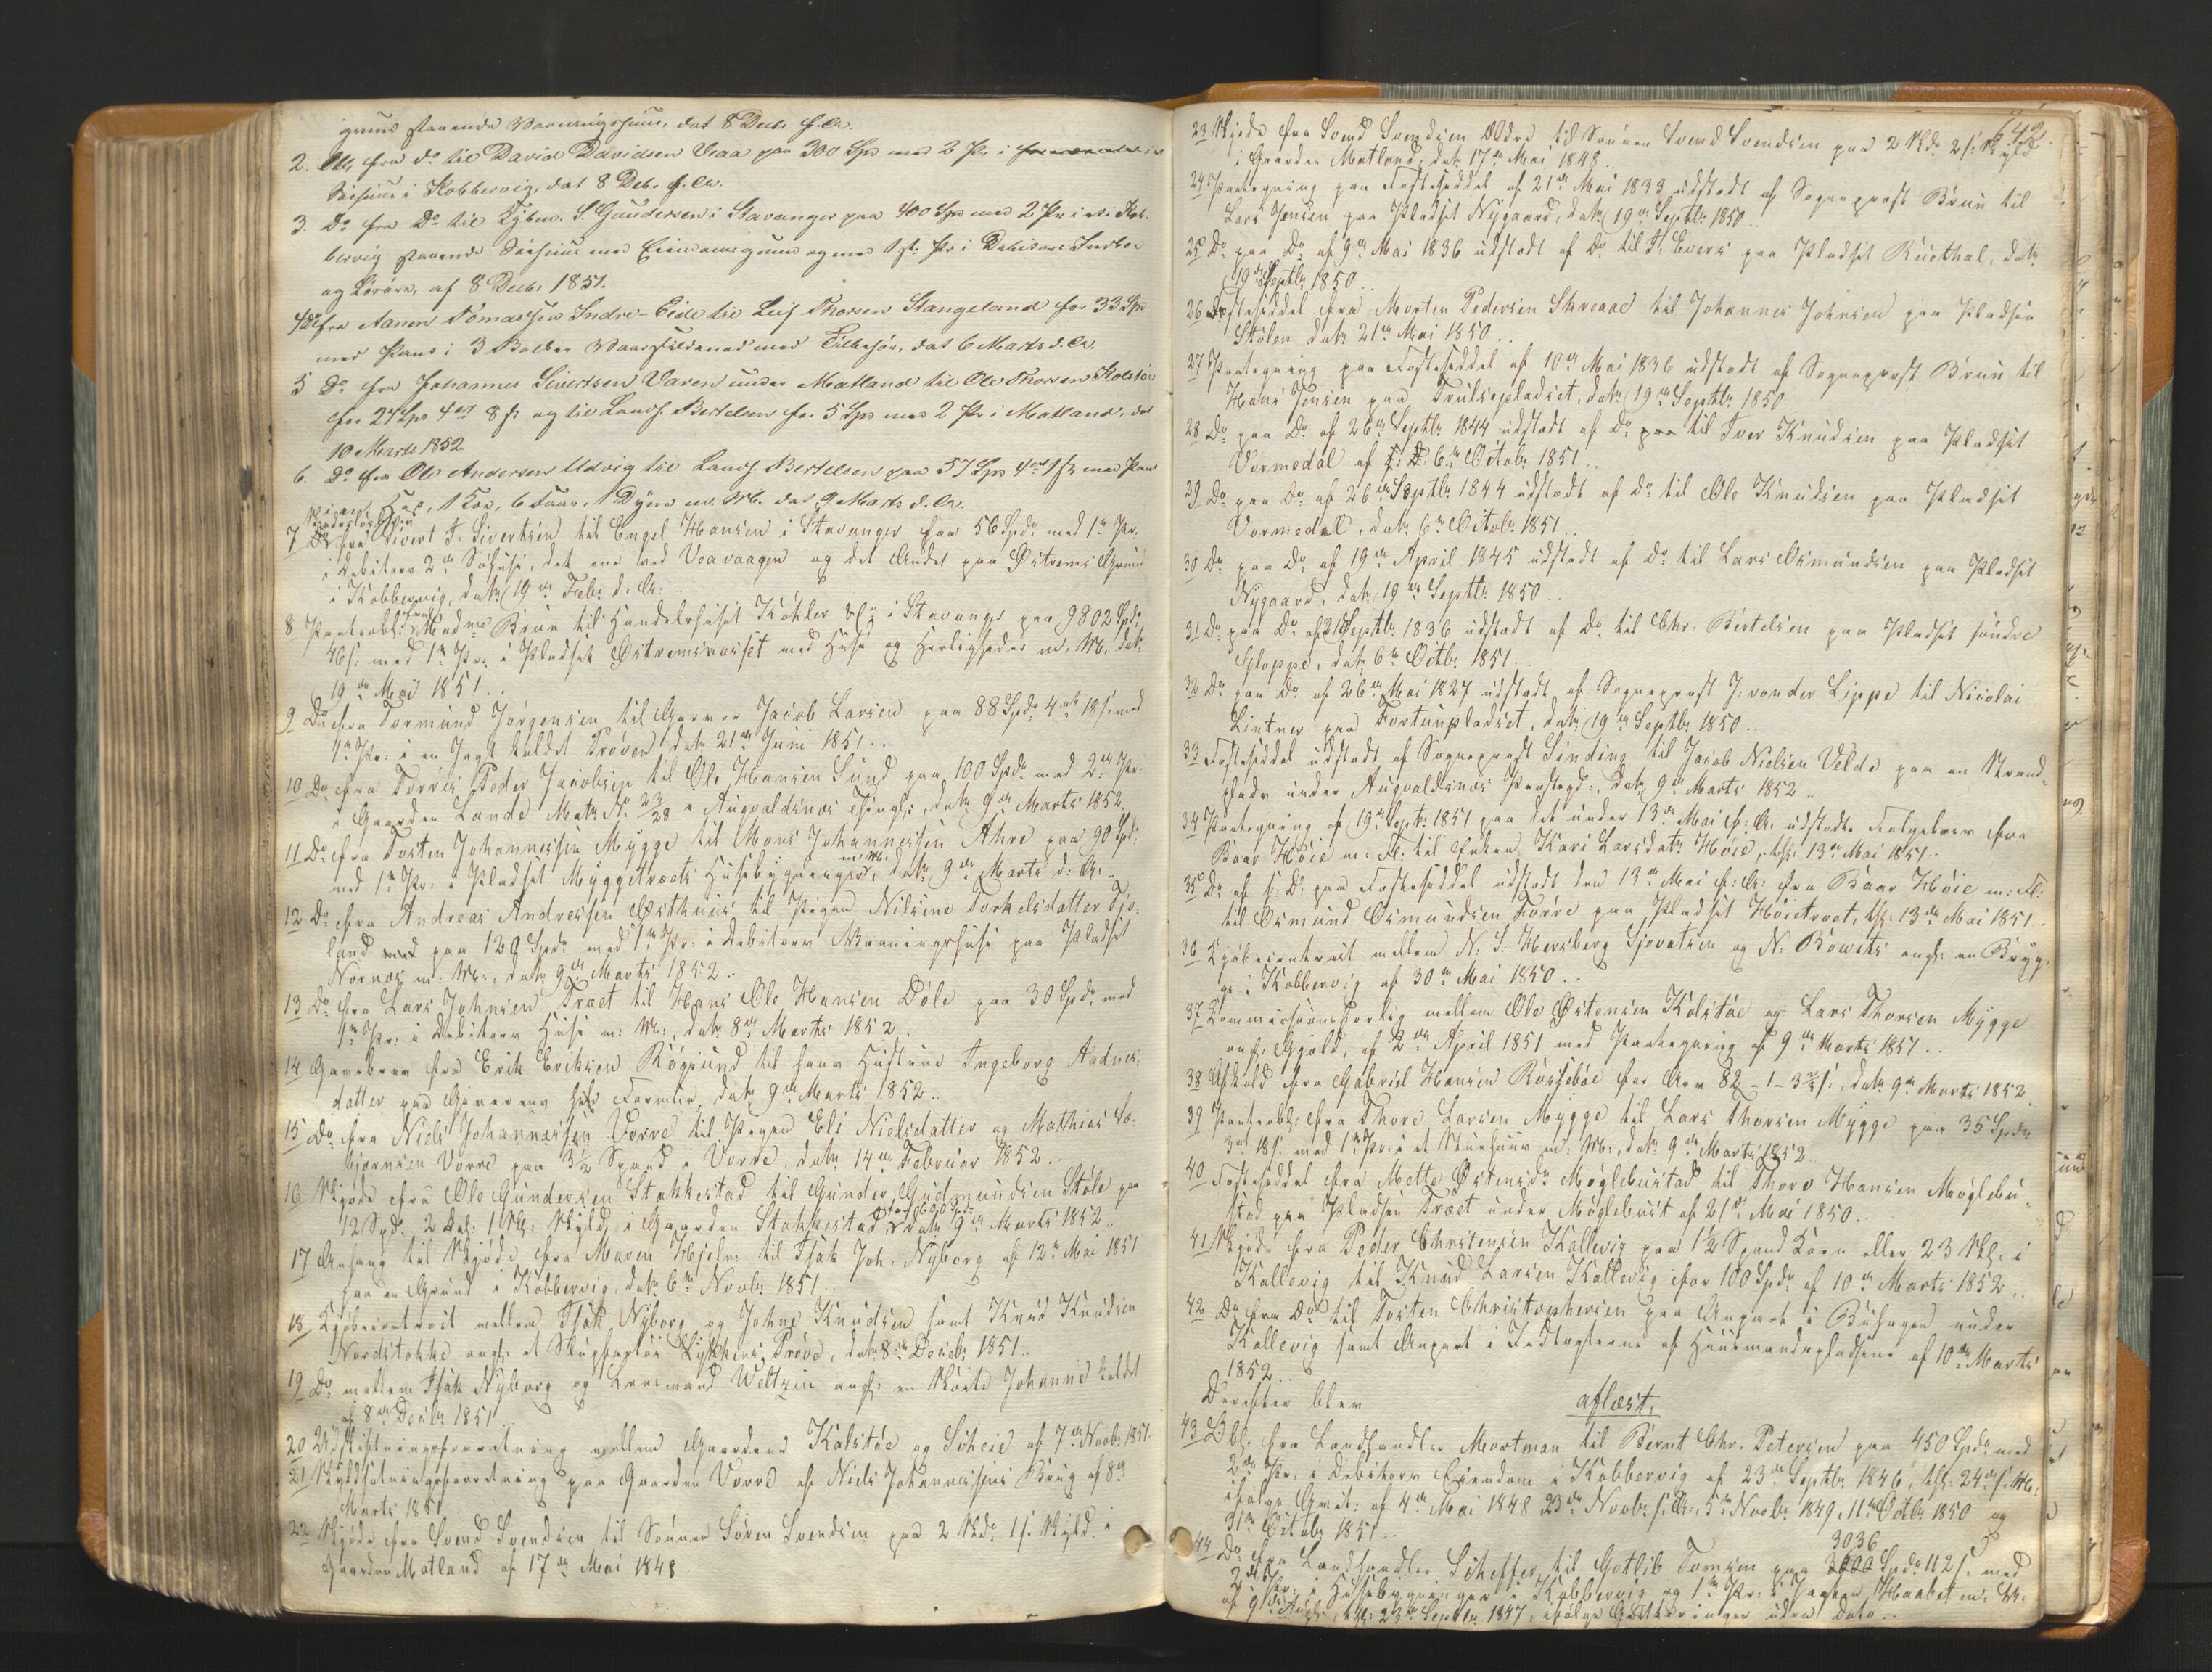 grund staaende Vaaningshuus, dat 8 Decbr f. A.
2. Obl. fra do til David Davidsen Viaa paa 300 Spd med 2 Pr i
Søehuus i Kobbervig, dat 8 Deb. f. A.
3. Do fra Do til Kjbm. S. Gundersen i Stavanger paa 400 Spd med 2 Pr i et i Kob-
bervig staaende Søehuus med Eiendomsgrund og med 1ste Pr i Debitors Indbo
og Løsøre, af 8 Decbr 1851.
4 Do fra Aanen Tomassen Indre-Eide til Leif Thorsen Stangeland for 33 Spd
med Pant i 3 Bolker Vaarsildenot med Tilbehør, dat 6 Marts d. A.
5 Do fra Johannes Sivertsen Varen under Matland til Ole Thorsen Kolstøe
for 24 Spd 4 ort 8 s og til Landh. Bertelsen for 5 Spd med 2 Pr i Matland, dat
10 Marts 1852
6. Do fra Ole Andersen Udvig til Landh. Bertelsen paa 57 Spd 4 ort 1 s med Pant
i en Hest, 1 Koe, 6 Faar, 1 Dyne m. M. dat 9 Marts d. A.
7 fra Sivert T. Sivertsen til Engel Hansen i Stavanger paa 56 Spd med 1ste Pr.
i Debitors 2de Søhuse, det ene ved Veavaagen og det Andet paa Østrems Grund
i Kobbervig, dat 19de Febr. d. A.
8 Panteobl: fra Madme Brun til Handelshuset Køhler & Co i Stavanger paa 9802 Spd
46 s: med 1ste Pr: i Pladset Østremnesset med Huse og Herligheder m. M. dat
19de Mai 1851.
9 Do fra Tormund Jørgensen til Garver Jacob Larsen paa 88 Spd: 4 ort 18 s: med
1ste Pr: i en Jagt kaldet Prøven dat 21de Juni 1851.
10 Do fra Torris Peder Jacobsen til Ole Hansen Sund paa 100 Spd: med 2de Pr.
i Gaarden Lande Matr No 23/28 i Augvaldsnæs Thingl:, dat 9de Marts 1852.
11 Do fra Torsten Johannessen Mygge til Mons Johannessen Ahre paa 90 Spd:
med 1ste Pr: i Pladset Myggetræets Husebygninger m: M:, dat 9de Marts d: A:
12 Do fra Andreas Andresen Østhuus til Pigen Nilsine Torkelsdatter Tjø-
land paa 120 Spd: med 1ste Pr: i Debitors Vaaningshuse paa Pladset
Nornæs m: M:, dat 9de Marts 1852.
13 Do fra Lars Johnsen Træet til Hans Ole Hansen Døle paa 30 Spd med
1ste Pr: i Debitors Huse m: M:, dat 8de Marts 1852.
14 Gavebrev fra Erik Eriksen Røgsund til hans Hustrue Ingeborg Aadnes-
datter paa Giverens hele Formue, dat 9de Marts 1852.
15 Do fra Niels Johannessen Vorre til Pigen Eli Nielsdatter og Mathias Tor-
bjørnsen Vorre paa 3½ Spand i Vorre, dat 14de Februar 1852.
16 Skjøde fra Ole Gundersen Stakkestad til Gunder Gudmundsen Støle paa
12 Spd: 2 Dal: 1 Skl: Skyld i Gaarden Stakkestad for 600 Spd: dat 9de Marts 1852.
17 Anhang til Skjøde fra Maren Hjelm til Isak Joh: Nyborg af 12te Mai 1851
paa en Grund i Kobbervig dat 6te Novbr 1851.
18 Kjøbecontract mellem Isak Nyborg og Johne Knudsen samt Knud Knudsen
Nordstokke angl: et Skipsfartøi Lykkens Prøve, dat 8de Decbr 1851.
19 Do mellem Isak Nyborg og Weltzin angl: en Skøite Johanne kaldet
af 8de Decbr 1851.
20 Udskiftningsforretning mellem Gaardene Kolstøe og Liheie af 7de Novbr 1851
21 Skyldsætningsforretning paa Gaarden Vorre af Niels Johannessens Brug af 8de
Marts 1851
22 Skjøde fra Svend Svendsen til Sønnen Søren Svendsen paa 2 Skd: 1 s: Skyld i
Gaarden Matland af 17de Mai 1848
142.
23 Skjøde fra Svend Svendsen Ældre til Sønnen Svend Svendsen paa 2 Skd: 2 s: Skyld
i Gaarden Matland, dat 17de Mai 1848.
24 Paategning paa Fæsteseddel af 21de Mai 1833 udstedt af Sogneprest Brun til
Lars Jensen paa Pladset Nygaard, dat 19de Septbr 1850.
25 Do paa Do af 9de Mai 1836 udstedt af Do til T. Evers paa Pladset Rusthal, dat
19de Septbr 1850.
26 Fæsteseddel fra Morten Pedersen Skreaae til Johannes Johnsen paa Pladsen
Skolen dat 21de Mai 1850.
27 Paategning paa Fæsteseddel af 10de Mai 1836 udstedt af Sogneprest Brun til
Hans Jensen paa Trulsepladset, dat 19de Septbr 1850
28 Do paa Do af 26de Septbr 1844 udstedt af Do til Iver Knudsen paa Pladset
Vormedal af 6te Octobr 1851.
29 Do paa Do af 26de Septbr 1844 udstedt af do til Ole Knudsen paa Pladset
Vormedal, dat 6te Octobr 1851.
30 Do paa Do af 19de April 1845 udstedt af Do til Lars Osmundsen paa Pladset
Nygaard, dat 19de Septbr 1850.
31 Do paa Do af 21 Septbr 1836 udstedt af Do til Chr. Bertelsen paa Pladset søndre
Gloppe, dat 6te Octbr 1851.
32 Do paa Do af 26de Mai 1827 udstedt af Sogneprest J: von der Lippe til Nicolai
Lintner paa Fortunpladset, dat 19de Septbr 1850.
33 Fæsteseddel udstedt af Sogneprest Sinding til Jacob Nielsen Velde paa en Strand-
plads under Augvaldsnæs Præstegd:, dat 9de Marts 1852.
34 Paategning af 19de Septr 1851 paa det under 13de Mai f: A: udstedte Følgebrev fra
Baar Høie m: Fl: til Enken Kari Larsdatr Høie, thl: 13de Mai 1851.
35 Do af s: D: paa Fæsteseddel udstedt den 13de Mai f: A: fra Baar Høie m: Fl:
til Osmund Osmundsen Førre paa Pladset Høietræet, thl: 13de Mai 1851.
36 Kjøbecontract mellem N: S: Hersberg Sjovatsen og N: Bowitz angl: en Bryg-
ge i Kobbervig af 30te Mai 1850.
37 Commissionsforlig mellem Ole Østensen Kolstøe og Lars Thorsen Mygge
angl: Gjæld, af 2de April 1851 med Paategning af 9de Marts 1851.
38 Afkald fra Gabriel Hansen Røssebøe for Arv 82 - 1 - 3¾ s: dat 9de Marts 1852.
39 Panteobl: fra Thore Larsen Mygge til Lars Thorsen Mygge paa 35 Spd:
3 ort 18 s: med 1ste Pr: i et m: M:, dat 9de Marts 1852
40 Fæsteseddel fra Mette Østensdr Møglebustad til Thore Hansen Møglebu-
stad paa Pladsen Træet under Møglebust af 21de Mai 1850.
41 Skjøde fra Peder Christensen Kallevig paa 1½ Spand Korn eller 23 Skl: i
Kallevig til Knud Larsen Kallevig for 100 Spd: af 10de Marts 1852.
42 Do fra Do til Torsten Christophersen paa Anpart i Buhagen under
Kallevig samt Anpart i Indtægterne af Huusmandspladsene af 10de Marts
1852.
Derefter blev aflæst:
43 Obl: fra Landhandler Mortman til Bernt Chr. Petersen paa 450 Spd: med
2de Pr: i Debitors Eiendom i Kobbervig af 23de Septbr 1846, thl: 24de s: M:
ifølge Qvit: af 4de Mai 1848 23de Novbr s: A:, 5te Novbr 1849, 11te Octbr 1850 og
31te Octobr 1851.
44 Do fra Landhandler Scheffer til Gotlib Tomsen paa 3036 Spd: 112 s: med
2de Pr: i Husebygninger i Kobbervig og 1ste Pr: i Jagten Haabet m: M:
af 9de Aug:, thl: 23de Septbr 1847, ifølge Qvitteringer uden Dato.